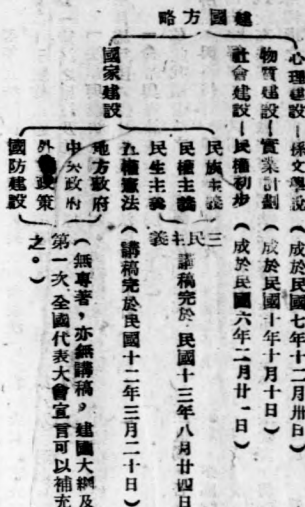 建國方略
心理建設—孫文學說（成於民國七年十二月卅日）
物質建設—實業計劃（成於民國十年十月十日）
社會建設—民權初步（成於民國六年二月廿一日）
國家建設
民族主義
民權主義
民生主義
三民主義
講稿完於民國十三年八月廿四日
五權憲法（講稿完於民國十二年三月二十日）
地方政府
中央政府
外 政策
國防建設
（無專著，亦無講稿，建國大綱及
第一次全國代表大會宣言可以補充
之。）